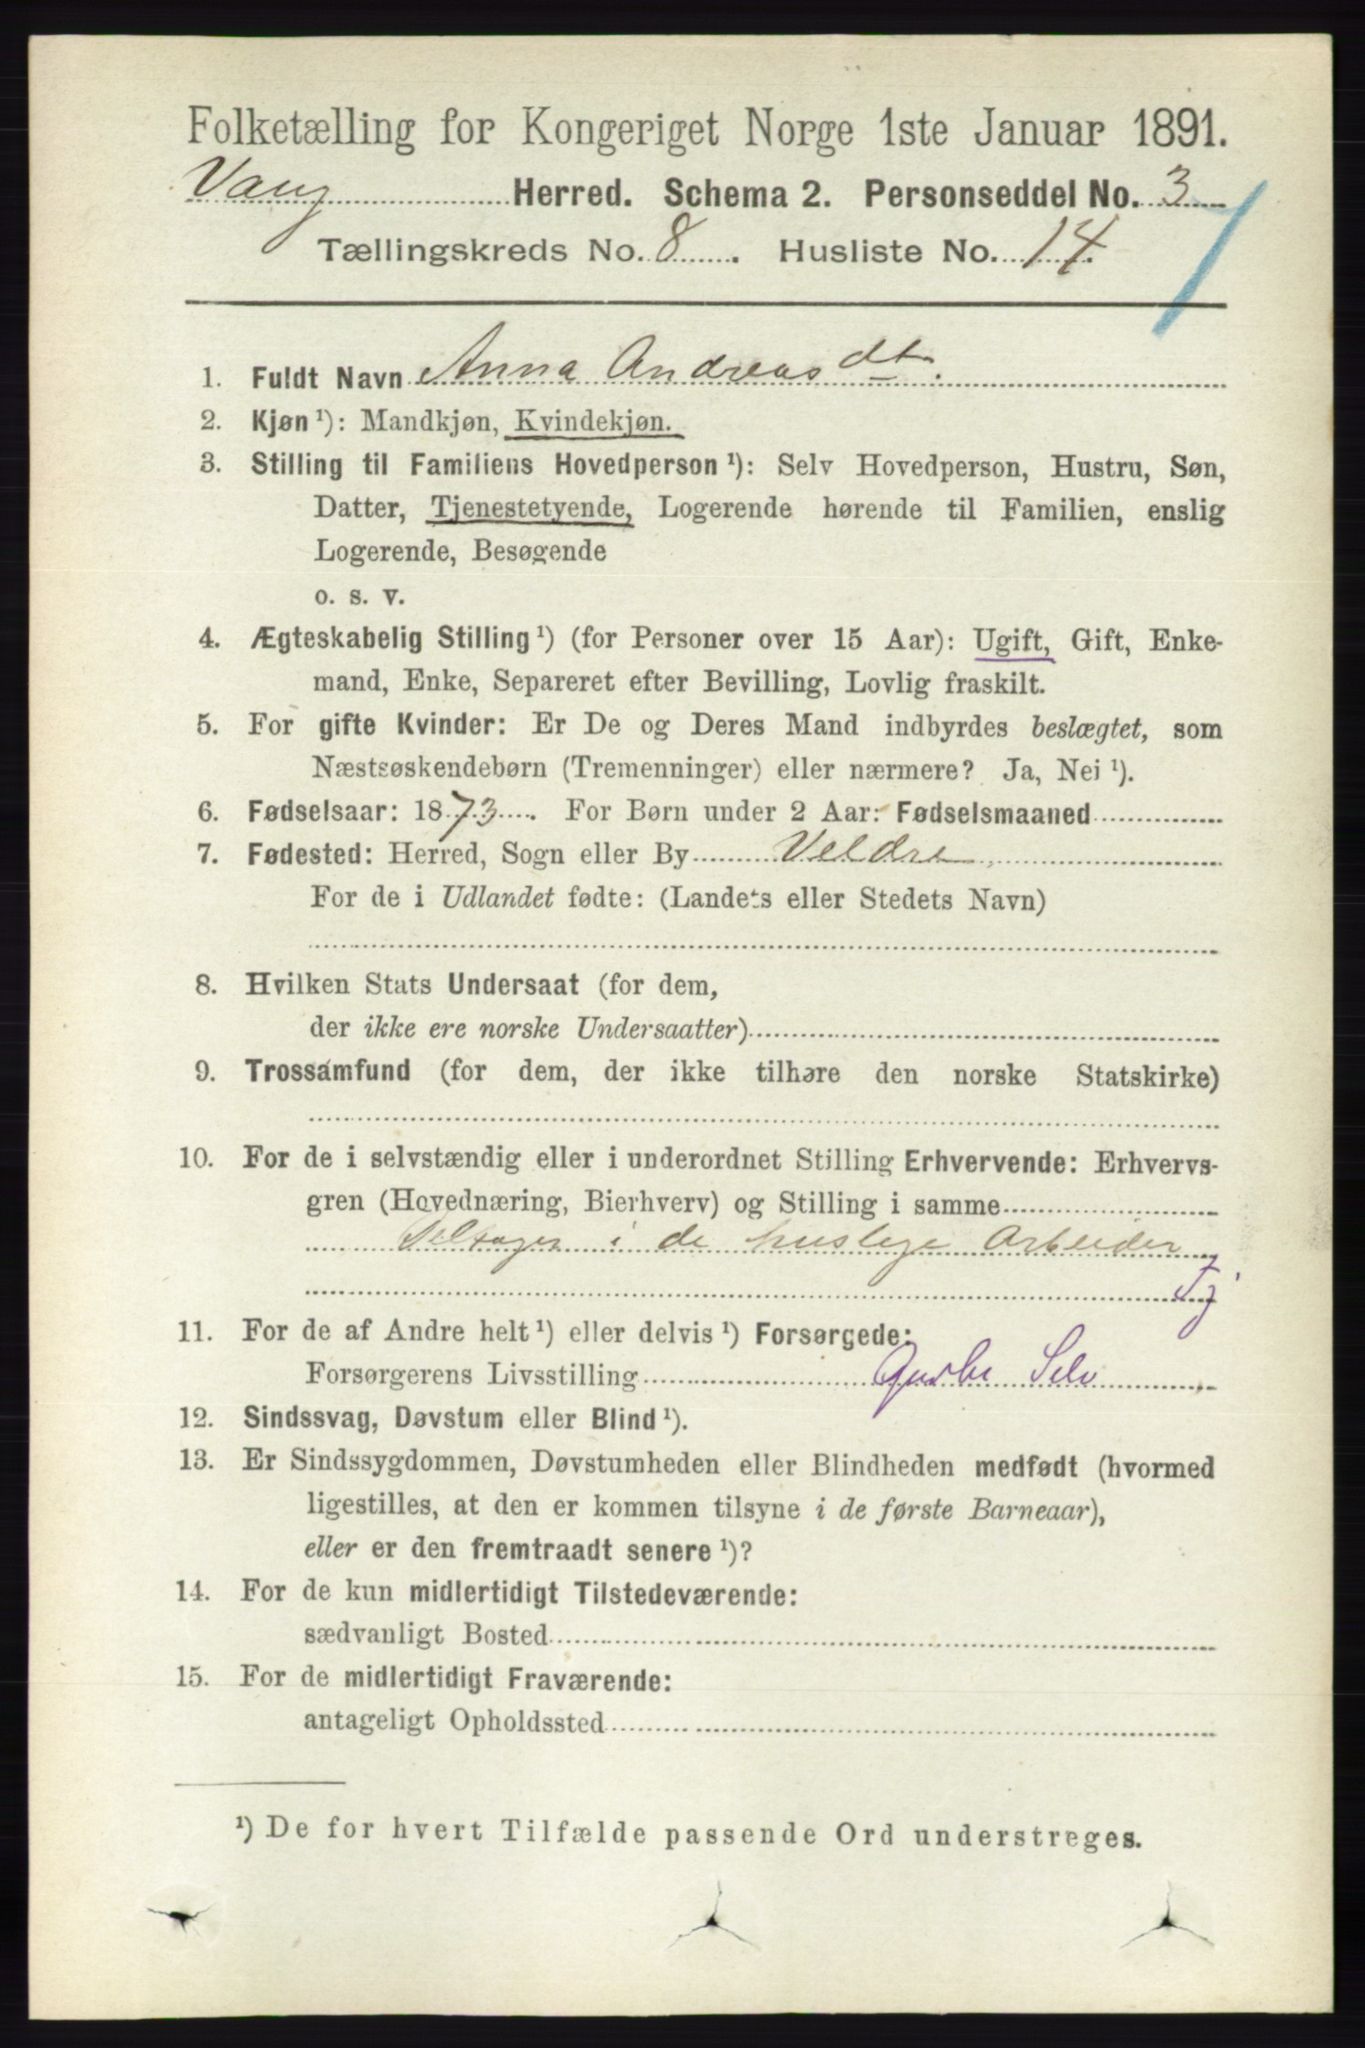 Folketælling for Kongeriget Norge 1ste Januar 1891.
Vang Herred. Schema 2. Personseddel No. 3
Tællingskreds No. 8. Husliste No. 14.
1. Fuldt Navn Anna Andreasdt.
2. Kjøn ¹): Mandkjøn, Kvindekjøn.
3. Stilling til Familiens Hovedperson ¹): Selv Hovedperson, Hustru, Søn,
Datter, Tjenestetyende, Logerende hørende til Familien, enslig
Logerende, Besøgende
o. s. v.
4. Ægteskabelig Stilling ¹) (for Personer over 15 Aar): Ugift, Gift, Enke-
mand, Enke, Separeret efter Bevilling, Lovlig fraskilt.
5. For gifte Kvinder: Er De og Deres Mand indbyrdes beslægtet, som
Næstsøskendebørn (Tremenninger) eller nærmere? Ja, Nei ¹).
6. Fødselsaar: 1873. For Børn under 2 Aar: Fødselsmaaned
7. Fødested: Herred, Sogn eller By Veldre,
For de i Udlandet fødte: (Landets eller Stedets Navn)
8. Hvilken Stats Undersaat (for dem,
der ikke ere norske Undersaatter)
9. Trossamfund (for dem, der ikke tilhøre den norske Statskirke)
10. For de i selvstændig eller i underordnet Stilling Erhvervende: Erhvervs-
gren (Hovednæring, Bierhverv) og Stilling i samme
Deltager i de huslige Arbeider
Tj
11. For de af Andre helt ¹) eller delvis ¹) Forsørgede:
Forsørgerens Livsstilling Gaardbr Selv
12. Sindssvag, Døvstum eller Blind ¹).
13. Er Sindssygdommen, Døvstumheden eller Blindheden medfødt (hvormed
ligestilles, at den er kommen tilsyne i de første Barneaar),
eller er den fremtraadt senere ¹)?
14. For de kun midlertidigt Tilstedeværende:
sædvanligt Bosted
15. For de midlertidigt Fraværende:
antageligt Opholdssted
¹) De for hvert Tilfælde passende Ord understreges.